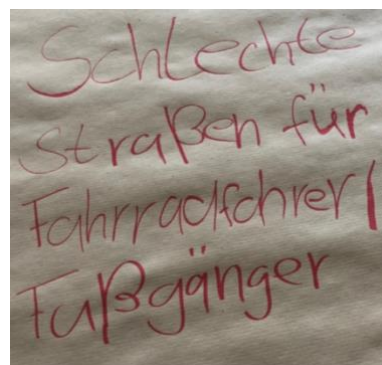 Schlechte
Straßen für
Fahrradfahrer/
Fußgänger